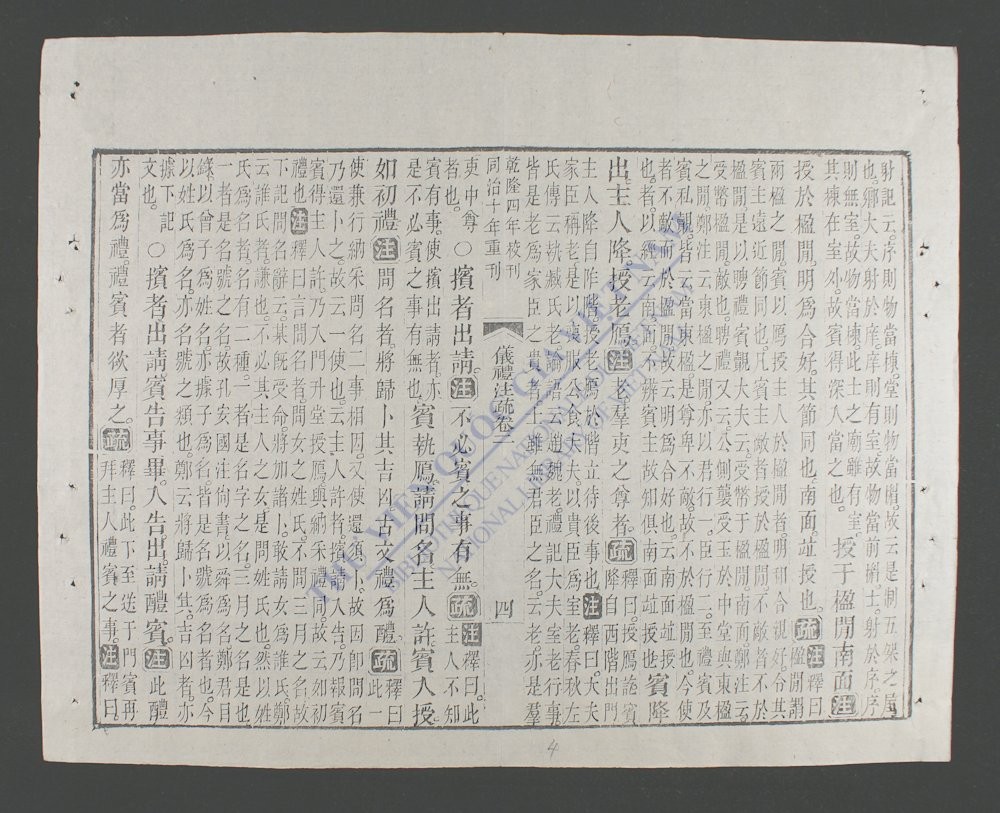 射記云。序則物當棟。堂則物當楣。故云是制五架之屋
也。鄉大夫射於庠。庠則有室。故物當前楣。士射於序。序
則無室。故物當棟。此士之廟雖有室。
其棟在室外。故賓得深入當之也。
授于楹閒南面。注
授於楹閒。明爲合好。其節同也。南面。並授也。疏
注釋曰
楹閒謂
兩楹之閒。賓以鴈授主人於楹閒者。明和合親好。令其
賓主遠近節同也。凡賓主敵者。授於楹閒。不敵者不於
楹閒。是以聘禮賓覿大夫云。受幣于楹閒南面。鄭注云
受幣楹閒。敵也。聘禮又云。公側襲受玉於中堂與東楹
之閒。鄭注云。東楹之閒。亦以君行一。臣行二。至禮賓及
賓私覿。皆云當東楹。是尊卑不敵。故不於楹閒也。今使
者不敵。而於楹閒。故云明爲合好也。云南面並授
也者。以經云南面不辨賓主。故知俱南面並授也。
賓降
出主人降。授老鴈。注老羣吏之尊者。疏
釋曰。授鴈訖賓
降自西階出門
主人降自阼階。授老鴈於階。立待後事也。注釋曰。大夫
家臣稱老。是以喪服公食大夫以貴臣爲室老。春秋左
氏傳云執臧氏老。論語云趙魏老。禮記大夫室老行事。
皆是老爲家臣之貴者。士雖無君臣之名。云老亦是羣
乾隆四年校刊
同治十年重刊
儀禮注疏卷二
四
吏中尊
者也。
○擯者出請。注不必賓之事有無。疏
注釋曰。此
主人不知
賓有事。使擯出請者。亦
是不必賓之事有無也。
賓執鴈。請問名。主人許。賓入授。
如初禮。注問名者。將歸卜其吉凶。古文禮爲醴。疏
釋曰
此一
使兼行納采問名。二事相因。又使還須卜。故因即問名
乃還卜之。故云一使也。云主人許者。擯請入告。乃報賓
賓得主人許。乃入門升堂授鴈。與納采禮同。故云如初
禮也。注釋曰。言問名者。問女之姓氏。不問三月之名。故
下記問名辭云。某既受命。將加諸卜。敢請女爲誰氏。鄭
云誰氏者。謙也。不必其主人之女。是問姓氏也。然以姓
氏爲名者。名有二種。一者是名字之名。三月之名是也。
一者是名號之名。故孔安國注尚書。以舜爲名。鄭君目
錄以曾子爲姓名。亦據子爲名。皆是名號爲名者也。今
以姓氏爲名。亦名號之類也。鄭云將歸卜其吉凶者。亦
據下記
文也。
○擯者出請。賓告事畢。入告出請醴賓。注此醴
亦當爲禮。禮賓者欲厚之。疏
釋曰。此下至送于門賓再
拜主人禮賓之事。注釋曰。
NATIONAL LIBRARY OF VIETNAM
4